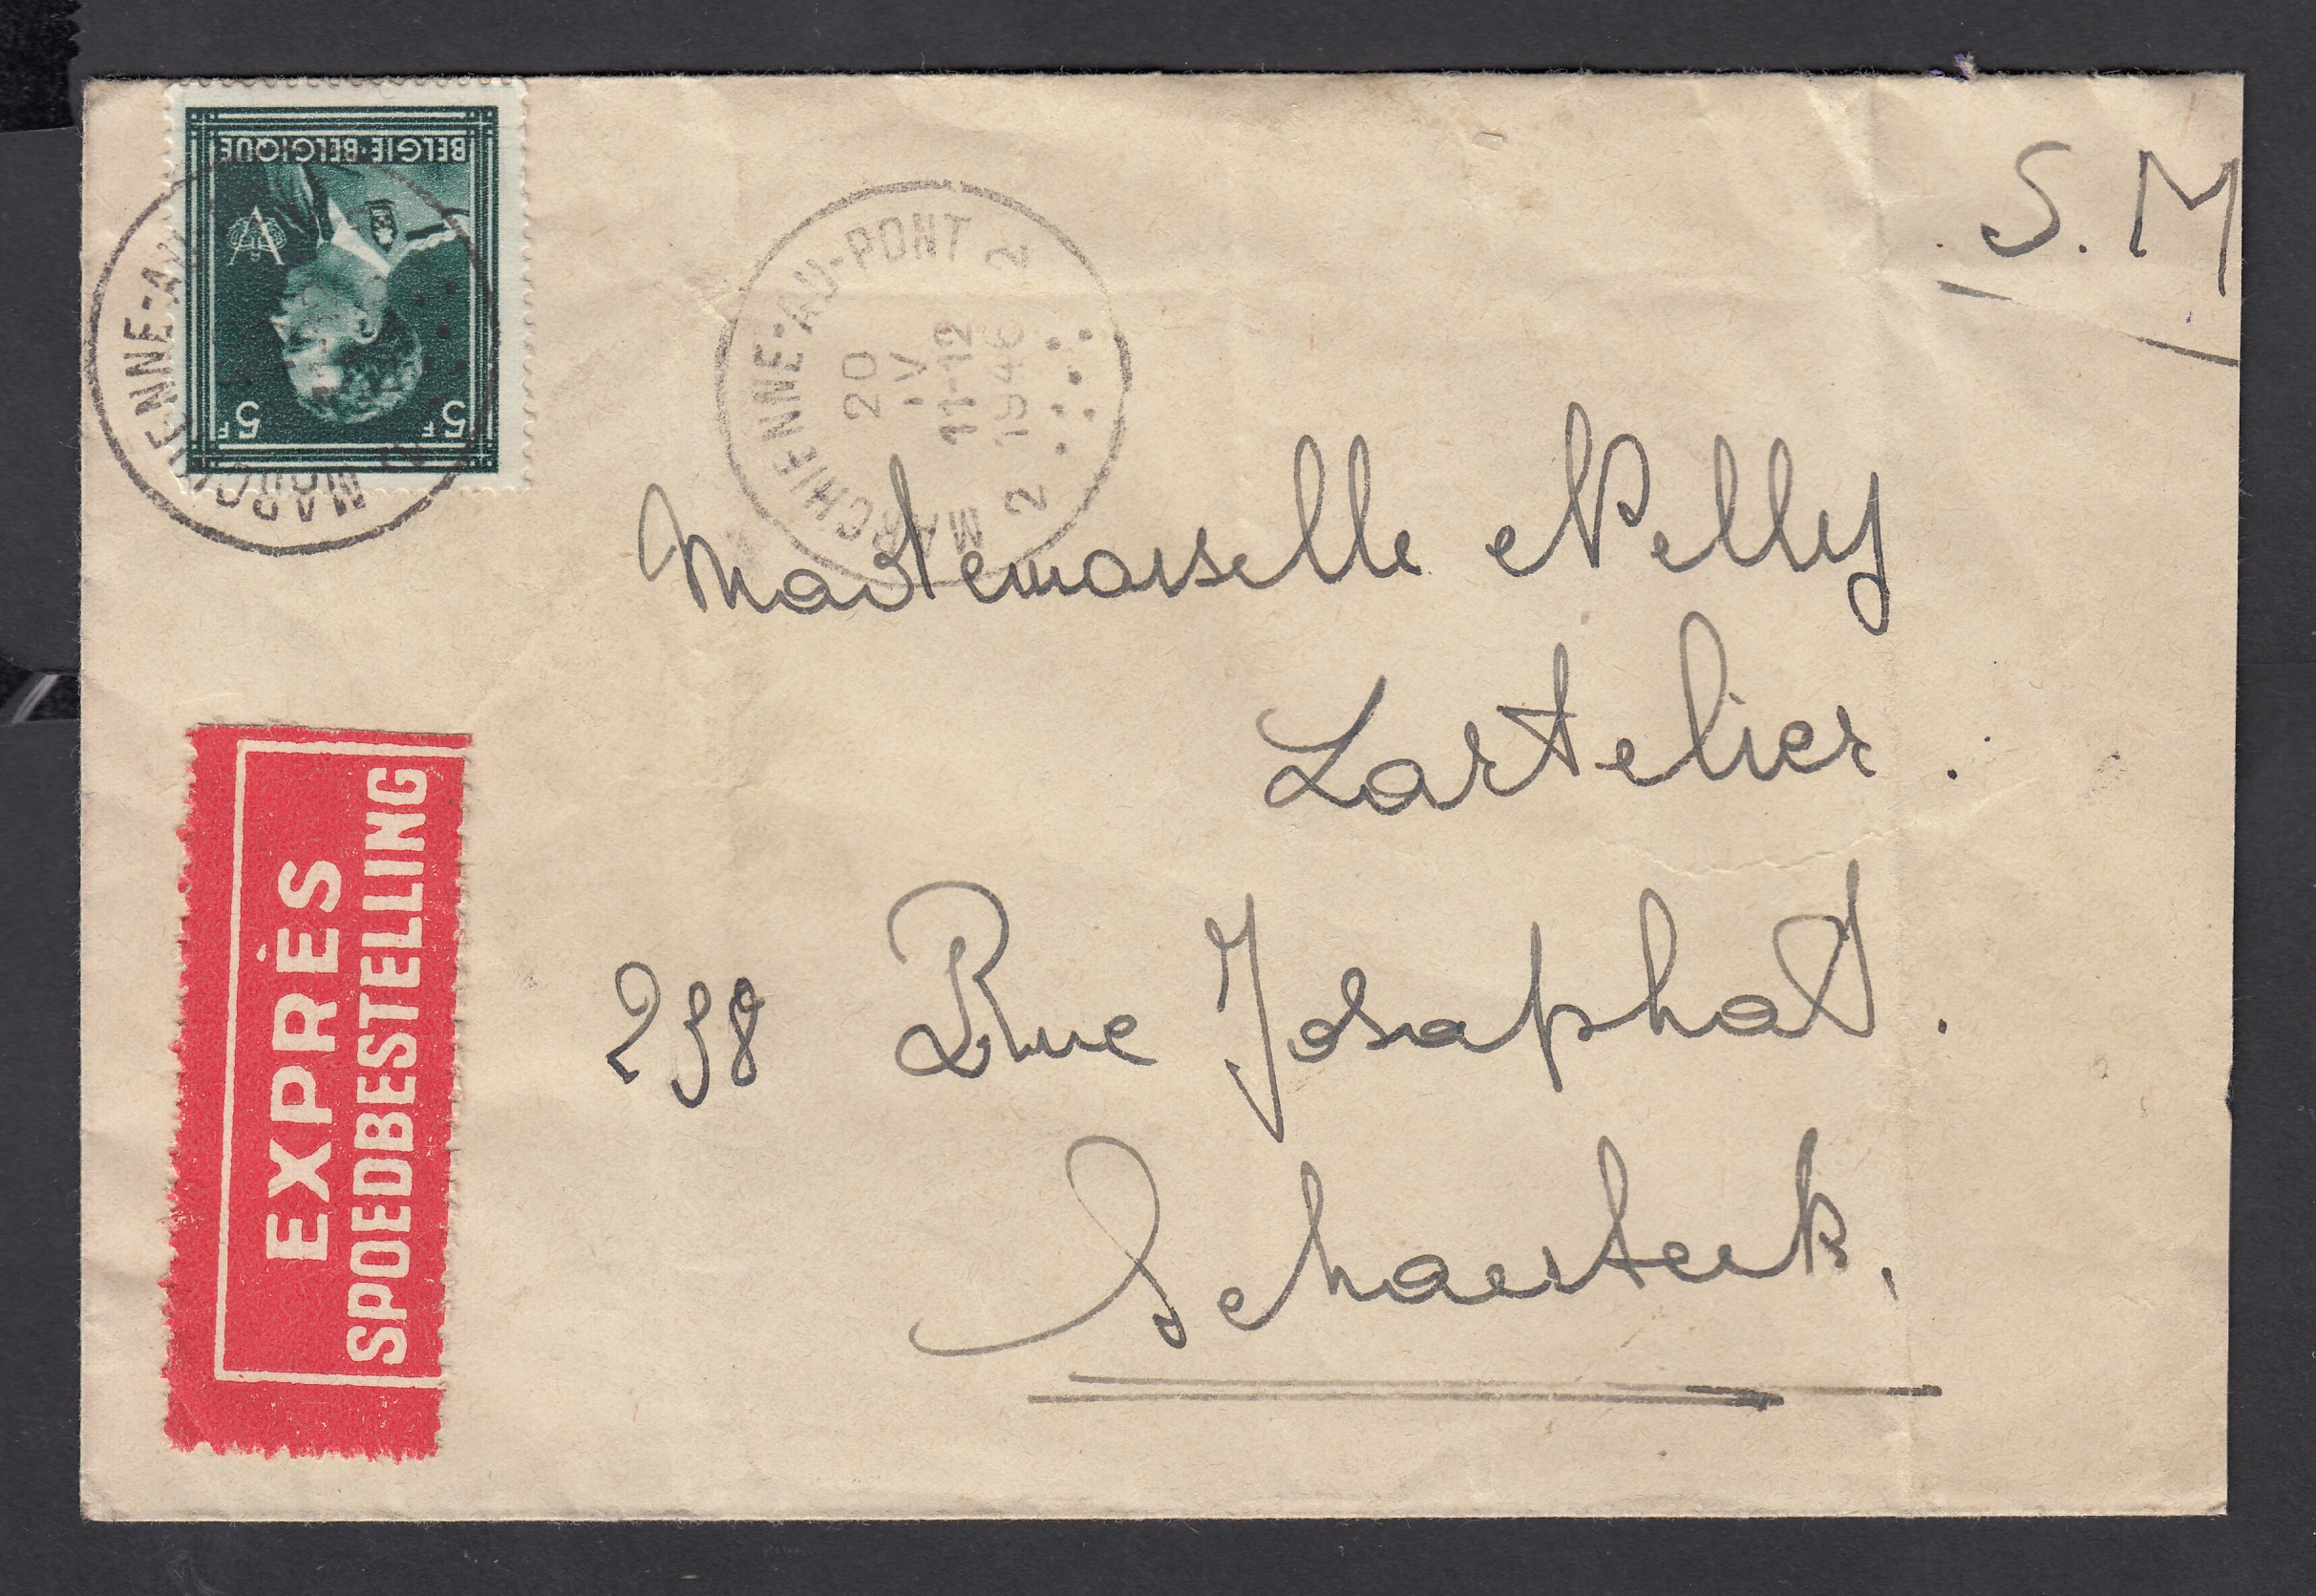 BELGIE-BELGIQUE
5F 5F
MARCHIENNE-AU-PONT
2 2
20
IV
11-12
1946
S. M
Mademoiselle Nelly
Lartelier.
238 Rue Josaphat.
Schaerbeek.
EXPRÈS
SPOEDBESTELLING